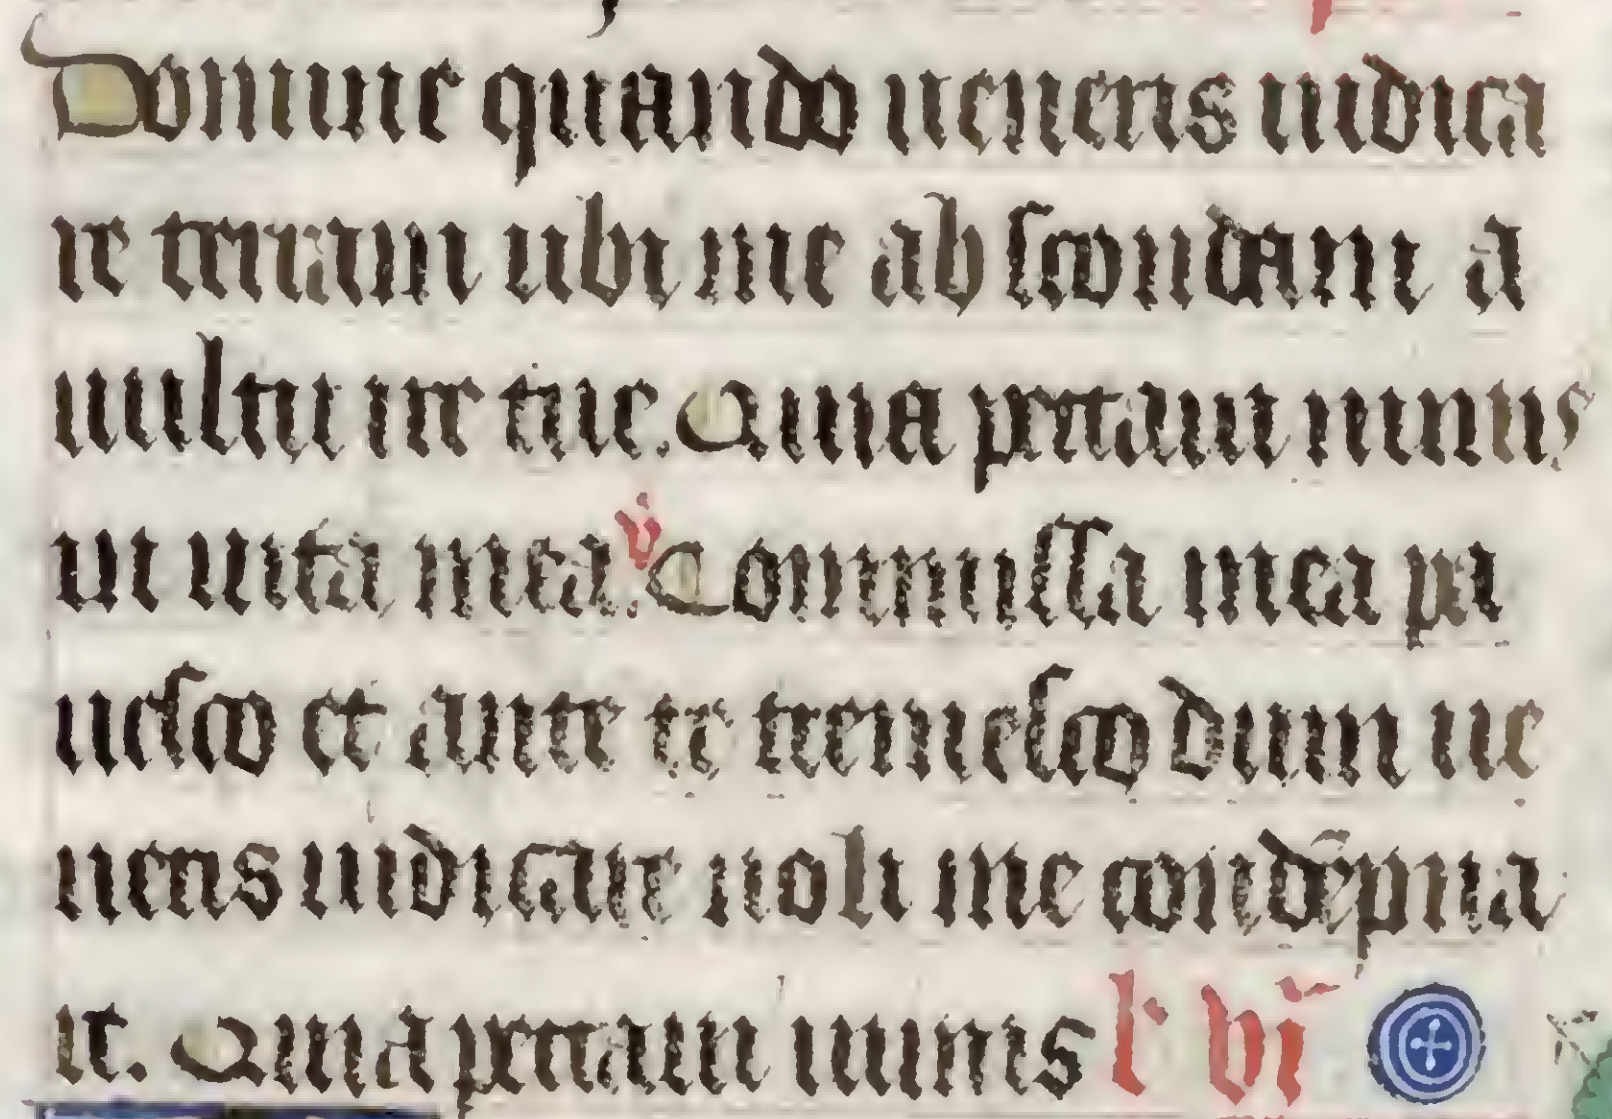 Domine quando ueneris iudica
re terram ubi me abscondam a
uultu ire tue. Quia peccaui nimis
in uita mea. v̇ Commissa mea pa
uesco et ante te tremesco dum ue
neris iudicare noli me condēpna
re. Quia peccaui nimis l' vı̄